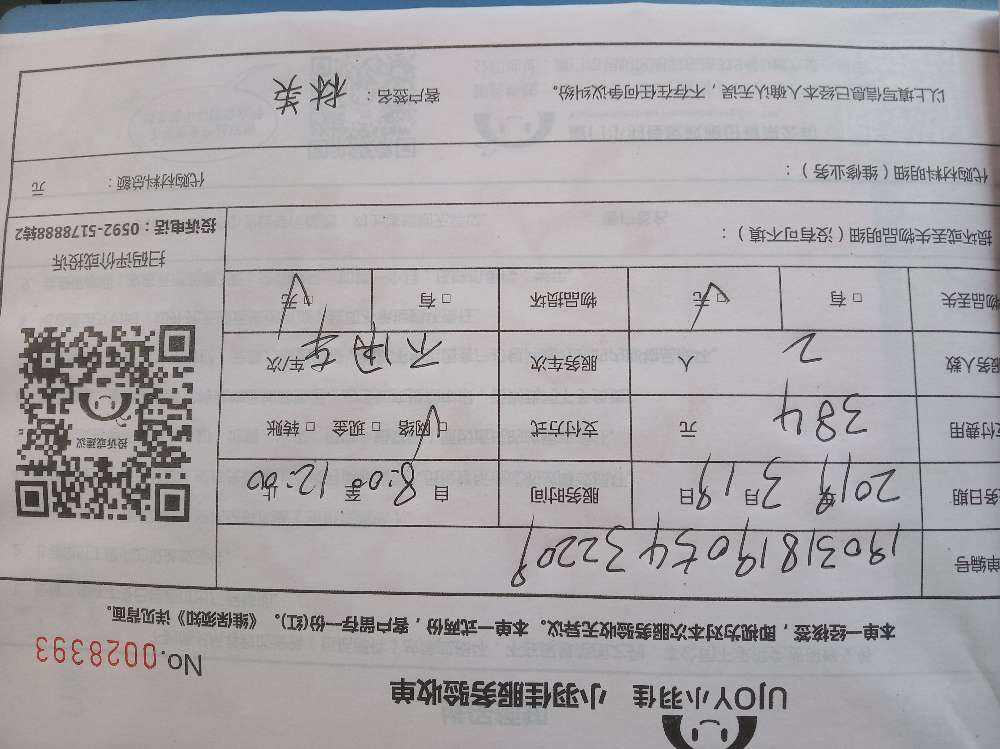 UJOY小羽佳 小羽佳服务验收单
No.0028393
本单一经核签，即视为对本次服务验收无异议。本单一式两份，客户留存一份(红)。《维保须知》详见背面。
单编号 1903181905432209
务日期 2019年3月19日 服务时间 自8:00至12:00止
付费用 384元 支付方式 □网络 □现金 □转账
务人数 2人 服务车次 不用车 车/次
物品丢失 □有 □无 物品损坏 □有 □无
投诉或建议
扫码评价或投诉
投诉电话：0592-5178888转2
损坏或丢失物品明细（没有可不填）：
代购材料明细（维修业务）： 代购材料总额： 元
以上填写信息已经本人确认无误，不存在任何争议纠纷。 客户签名：林芙